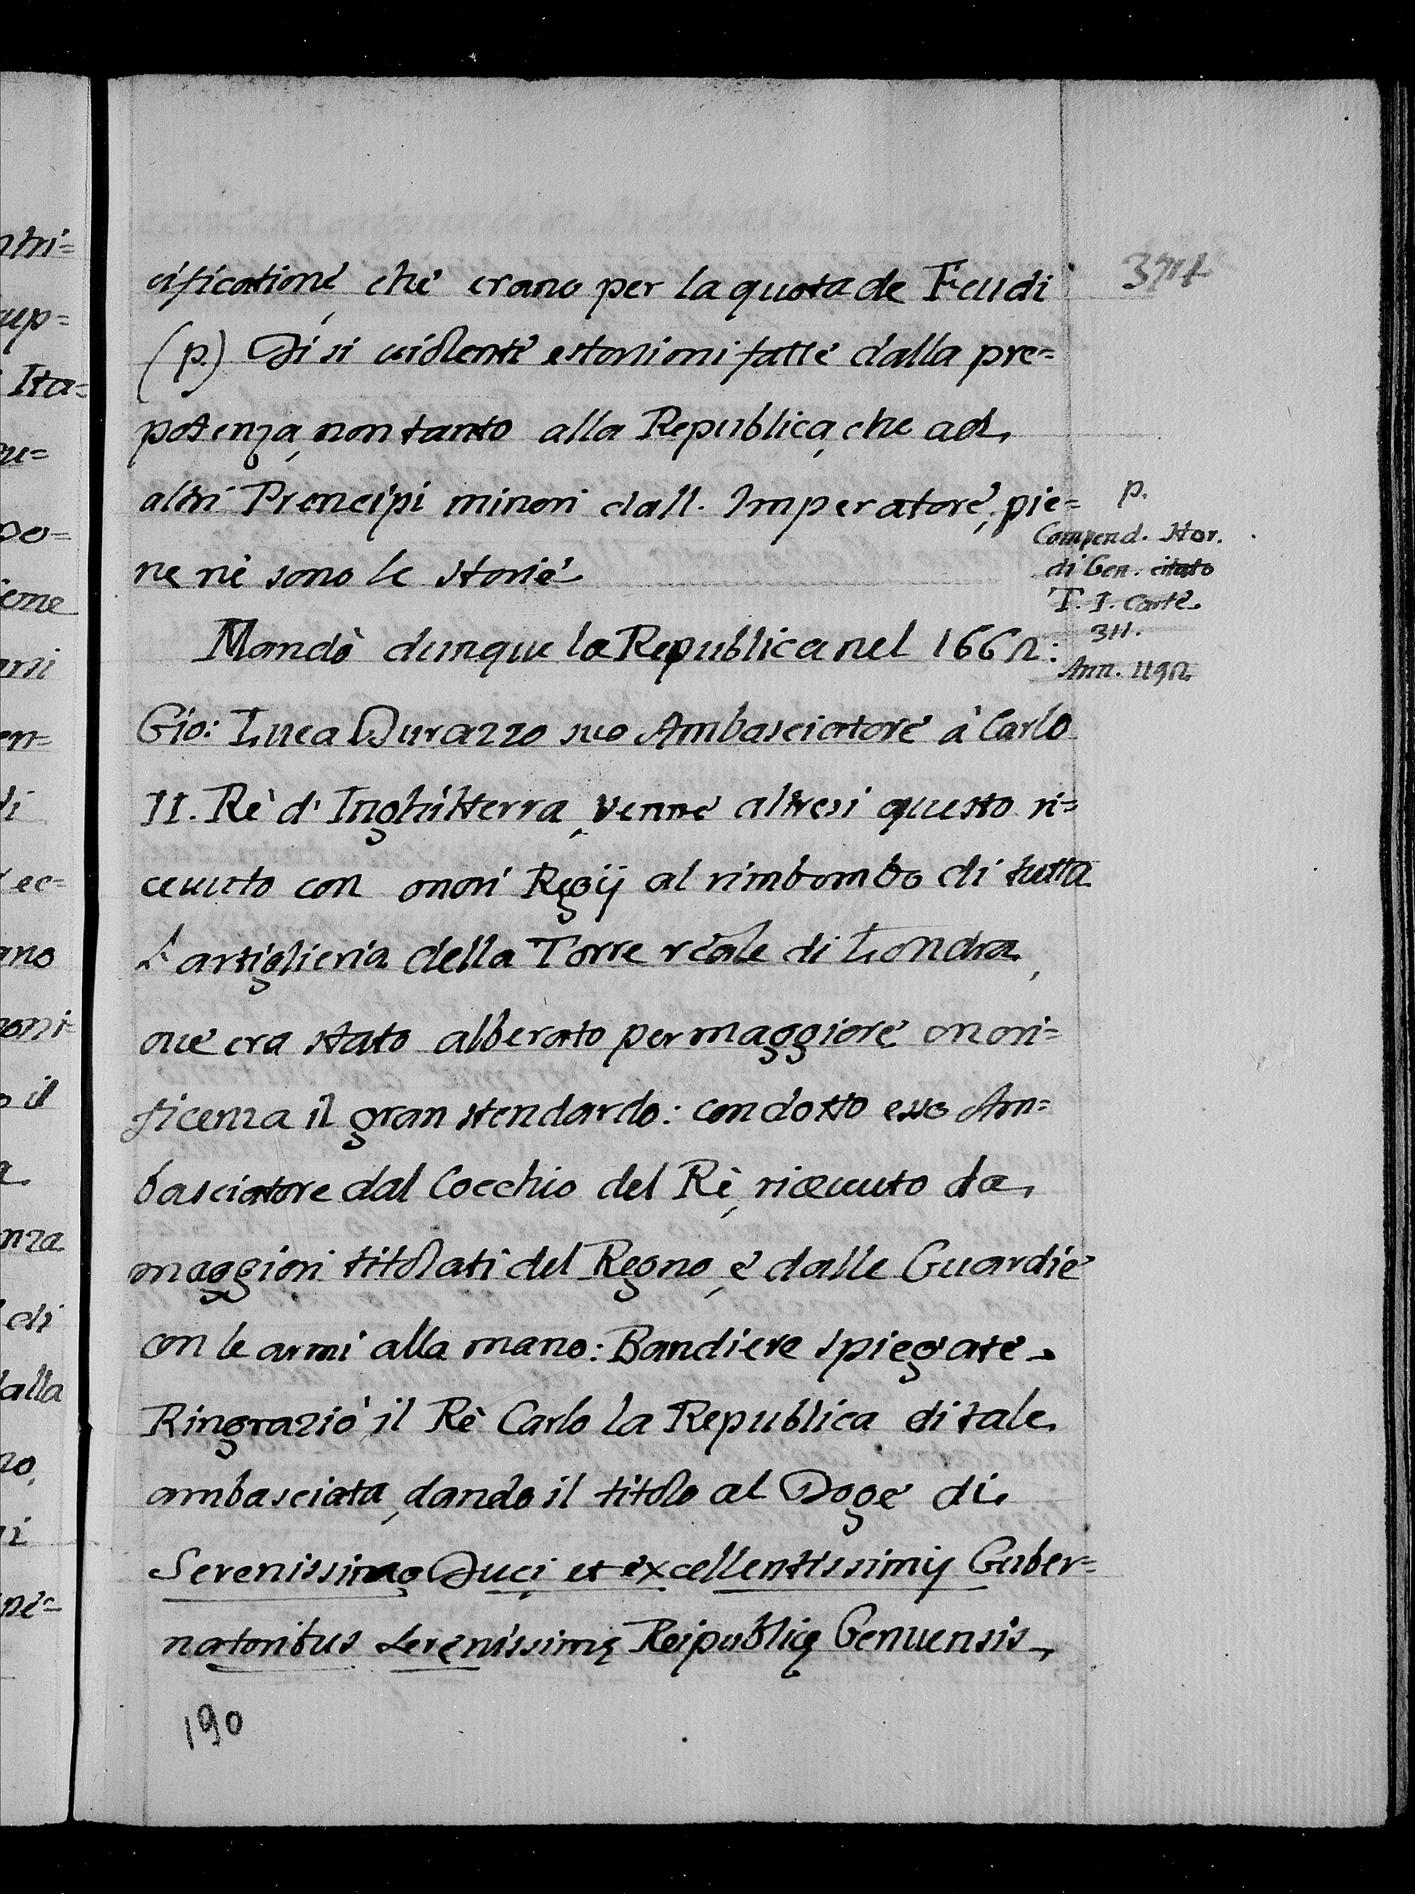 cificatione, che erano per la quota de Feudi
(p.) Di si uiolente estorsioni fatte dalla pre=
potenza, non tanto alla Republica, che ad
altri Prencipi minori dall. Imperatore, pie=
ne ne sono le storie
Mandò dunque la Republica nel 1662:
Gio: Luca Durazzo suo Ambasciatore à Carlo
II. Rè d'Inghilterra, venne altresi questo ri=
ceuuto con onori Regij al rimbombo di tutta
L'artiglieria della Torre reale di Londra,
oue era stato alberato per maggiore onori=
ficenza il gran stendardo: condotto esso Am=
basciatore dal Cocchio del Rè, riceuuto da
maggiori titolati del Regno, e dalle Guardie
con le armi alla mano: Bandiere spiegate
Ringraziò il Rè Carlo la Republica di tale
ambasciata, dando il titolo al Doge di
Serenissimo Duci et excellentissimij Guber=
natoribus Serenissimę Reipublicę Genuensis,
190
p.
Compend. Stor.
di Gen. citato
T. I. carte
311.
Ann. 1192
ntri=
up=
Ita=
u=
po=
ieme
en=
di
ec=
ano
oni=
o il
a
nza
di
dalla